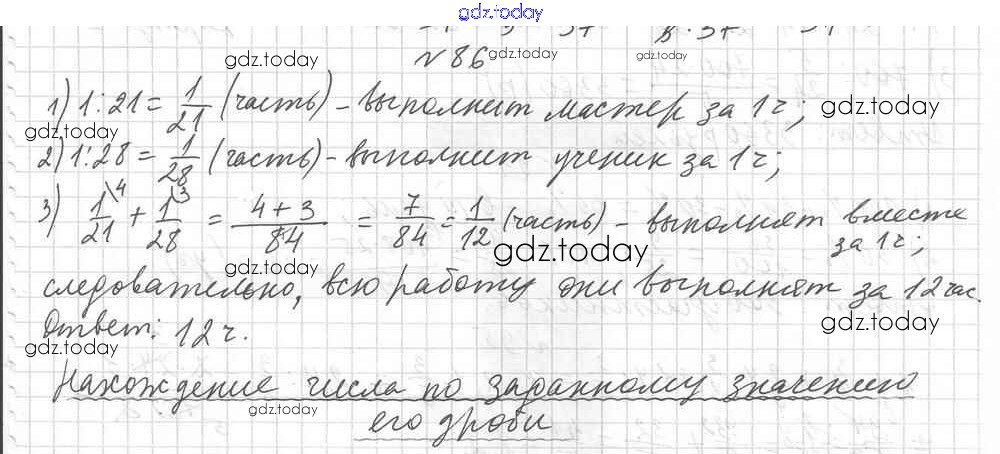 gdz.today
№86
gdz.today gdz.today
1) 1:21 = 1/21 (часть) – выполнит мастер за 1ч;
gdz.today gdz.today
2) 1:28 = 1/28 (часть) – выполнит ученик за 1ч;
3) 1\4/21 + 1\3/28 = 4+3/84 = 7/84 = 1/12 (часть) – выполнят вместе
за 1ч;
gdz.today gdz.today
следовательно, всю работу они выполнят за 12 час.
Ответ: 12 ч.
gdz.today gdz.today
Нахождение числа по заданному значению
gdz.today
его дроби